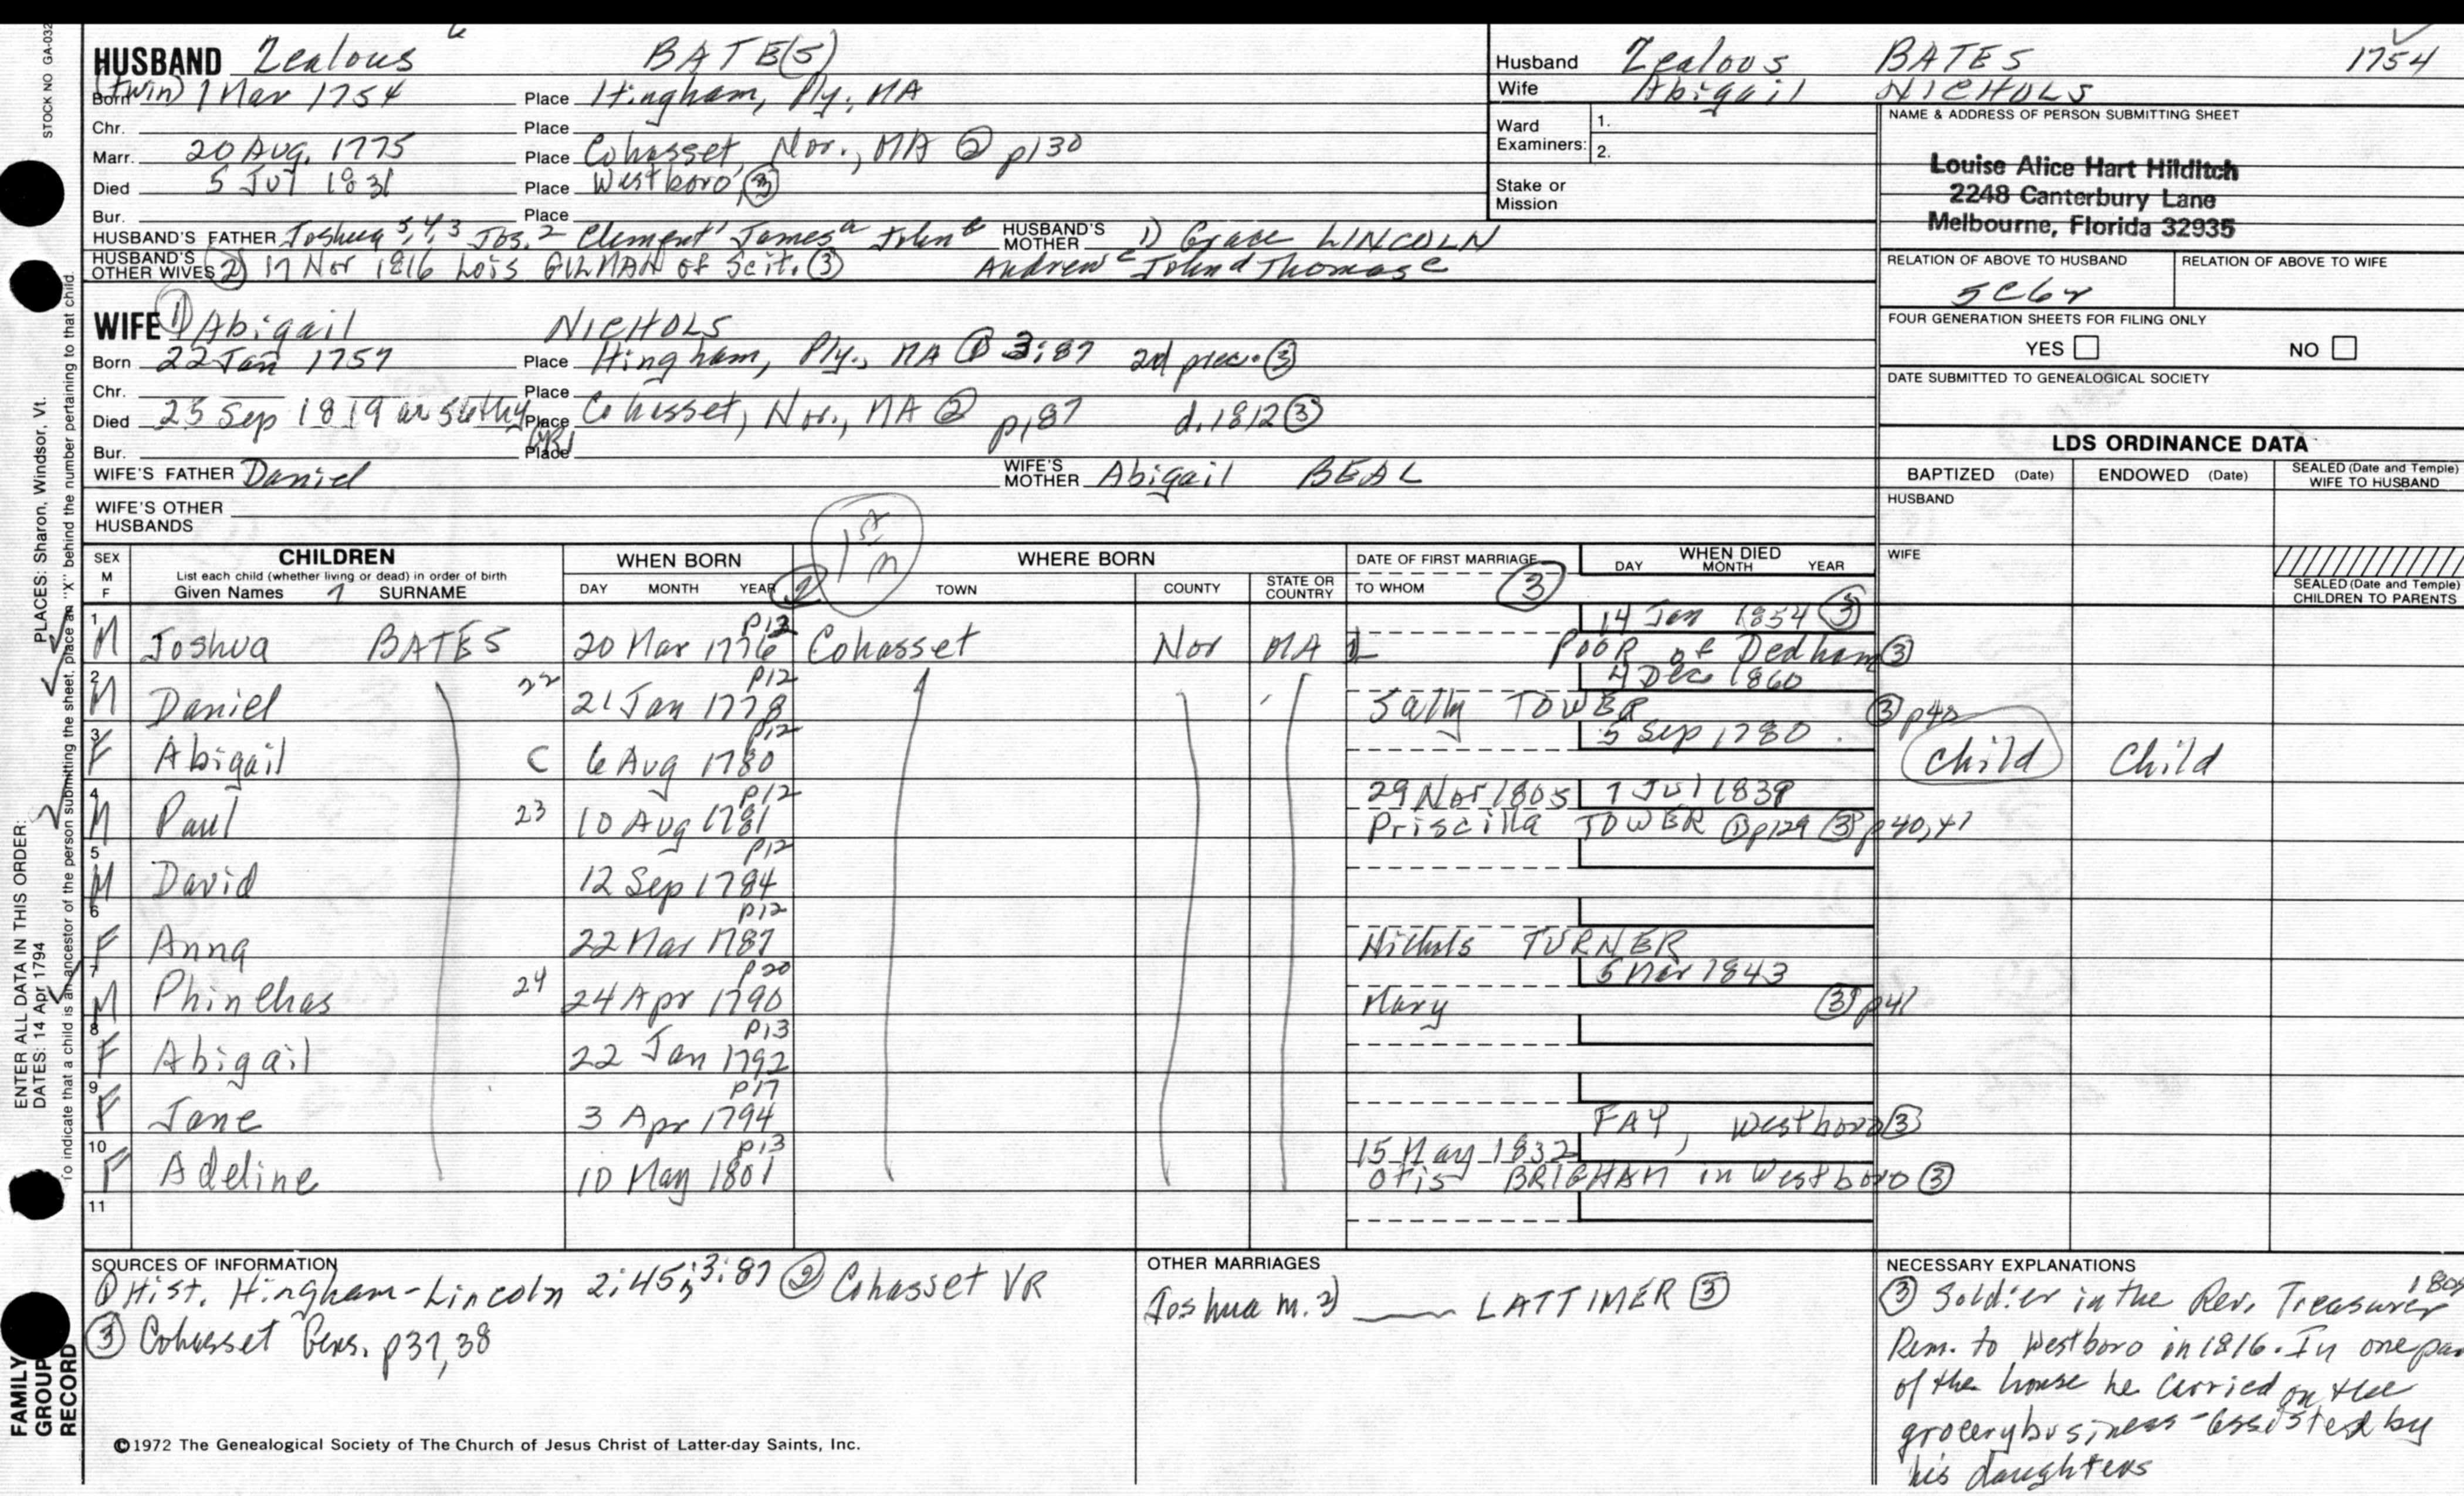 STOCK NO GA-032
HUSBAND Zealous 6 BATE(S)
(twin)
Born 1 Mar 1754 Place Hingham, Ply, MA
Chr. Place
Marr. 20 Aug. 1775 Place Cohasset, Nor., MA ② p130
Died 5 Jul 1831 Place Westboro ③
Bur. Place
HUSBAND'S FATHER Joshua 5,4,3 Jos. 2 Clement 1 James a John b HUSBAND'S MOTHER 1) Grace LINCOLN
HUSBAND'S OTHER WIVES 2) 17 Nov 1816 Lois GILMAN of Scit. ③ Andrew c John d Thomas e
Husband Zealous BATES 1754
Wife Abigail NICHOLS
Ward Examiners: 1.
2.
Stake or Mission
NAME & ADDRESS OF PERSON SUBMITTING SHEET
Louise Alice Hart Hilditch
2248 Canterbury Lane
Melbourne, Florida 32935
RELATION OF ABOVE TO HUSBAND RELATION OF ABOVE TO WIFE
5C6r
FOUR GENERATION SHEETS FOR FILING ONLY
YES NO
DATE SUBMITTED TO GENEALOGICAL SOCIETY
WIFE 1) Abigail NICHOLS
Born 22 Jan 1757 Place Hingham, Ply., MA ① 3:87 2nd prec. ③
Chr. Place
Died 25 Sep 1819 Place Cohasset, Nor., MA ② p187 d. 1812 ③
Bur. Place
WIFE'S FATHER Daniel WIFE'S MOTHER Abigail BEAL
WIFE'S OTHER HUSBANDS
LDS ORDINANCE DATA
BAPTIZED (Date) ENDOWED (Date) SEALED (Date and Temple) WIFE TO HUSBAND
HUSBAND
WIFE
SEALED (Date and Temple) CHILDREN TO PARENTS
1st m
SEX M F CHILDREN WHEN BORN WHERE BORN DATE OF FIRST MARRIAGE WHEN DIED
List each child (whether living or dead) in order of birth
Given Names 7 SURNAME DAY MONTH YEAR ② TOWN COUNTY STATE OR COUNTRY TO WHOM ③ DAY MONTH YEAR
p12 14 Jan 1854 ③
1 M Joshua BATES 20 Mar 1776 Cohasset Nor MA POOR of Dedham ③
p12 4 Dec 1860
2 M Daniel 22 21 Jan 1778 Sally TOWER ③ p40
p12 5 Sep 1780
3 F Abigail C 6 Aug 1780 Child Child
p12 29 Nov 1805 7 Jul 1839
4 M Paul 23 10 Aug 1781 Priscilla TOWER ① p129 ③ p40,41
p12
5 M David 12 Sep 1784
p12
6 F Anna 22 Mar 1787 Nichols TURNER
p20 5 Mar 1843
7 M Phinehas 24 24 Apr 1790 Mary ③ p41
p13
8 F Abigail 22 Jan 1792
p17
9 F Jane 3 Apr 1794 FAY, Westboro ③
p13 15 May 1832
10 F Adeline 10 May 1801 Otis BRIGHAM in Westboro ③
11
SOURCES OF INFORMATION
① Hist. Hingham-Lincoln 2:45; 3:87 ② Cohasset VR
③ Cohasset Gens. p37,38
©1972 The Genealogical Society of The Church of Jesus Christ of Latter-day Saints, Inc.
OTHER MARRIAGES
Joshua m. 2) LATTIMER ③
NECESSARY EXPLANATIONS
③ Soldier in the Rev. Treasurer
Rem. to Westboro in 1816. In one
of the house he carried on the
grocery business - assisted by
his daughters
ENTER ALL DATA IN THIS ORDER:
DATES: 14 Apr 1794 PLACES: Sharon, Windsor, Vt.
To indicate that a child is an ancestor of the person submitting the sheet, place an "X" behind the number pertaining to that child.
FAMILY GROUP RECORD